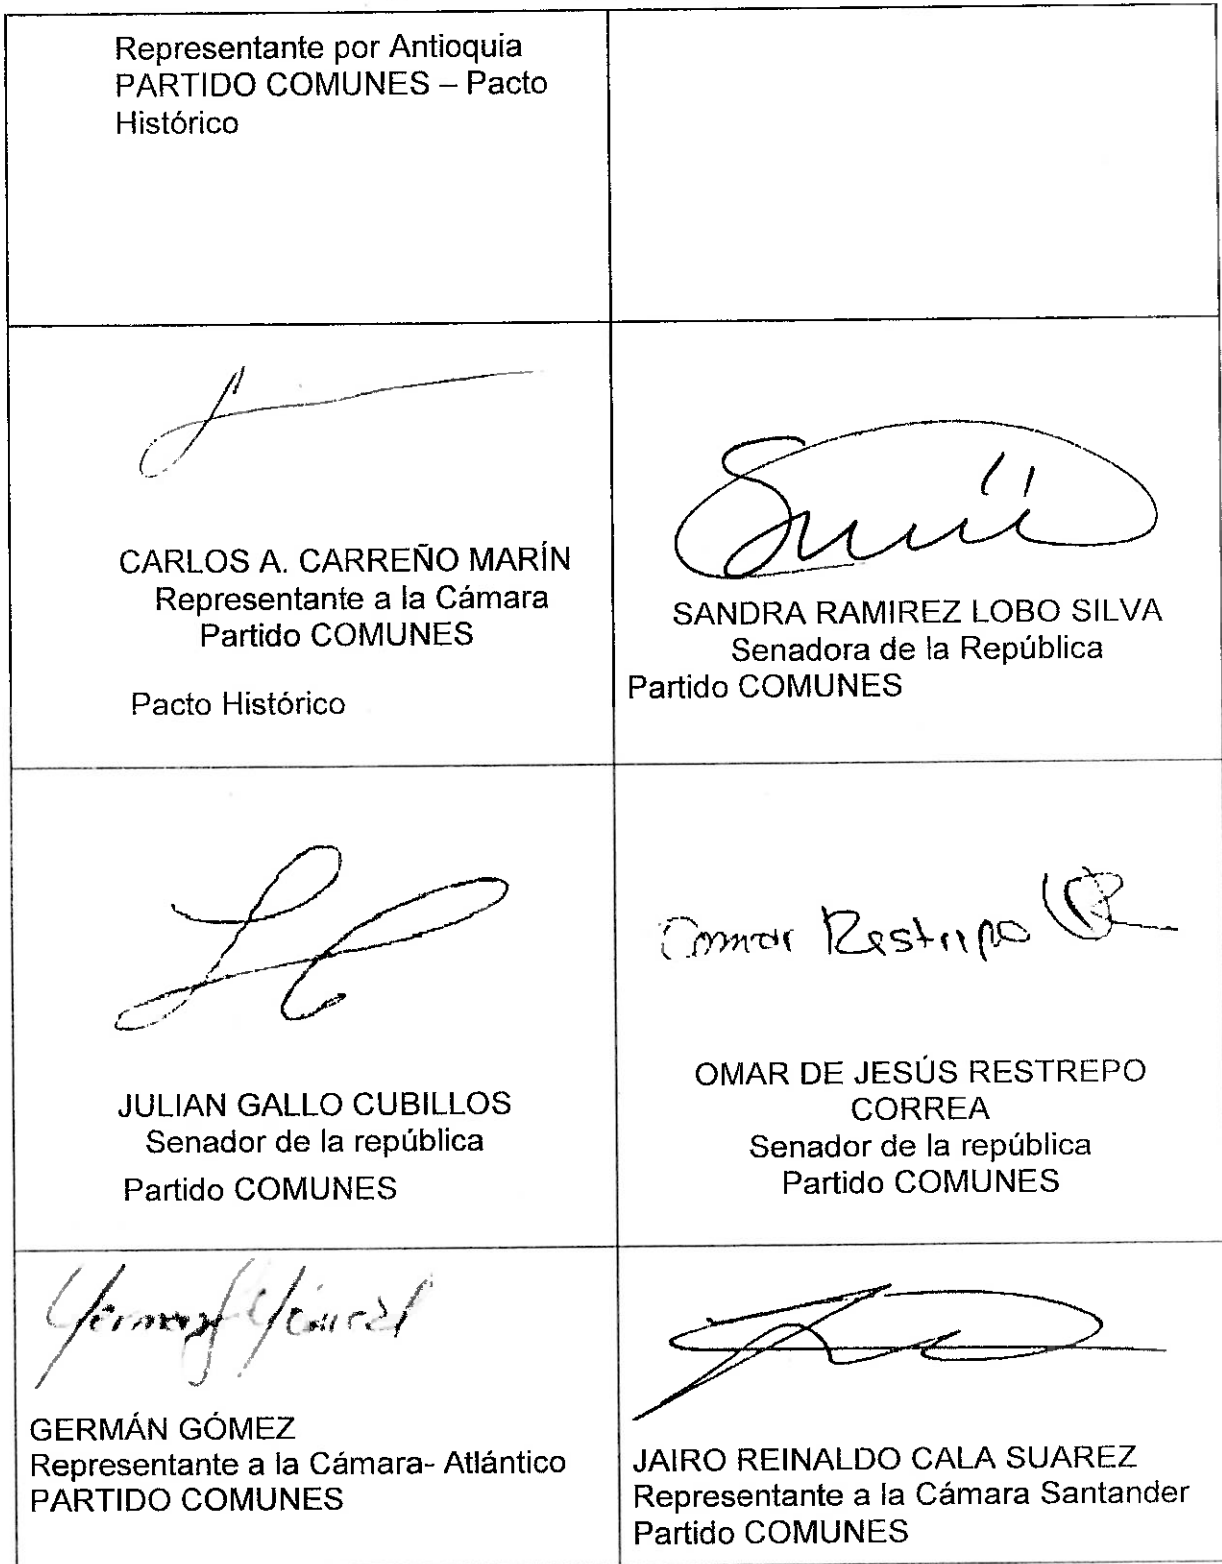 Representante por Antioquia
PARTIDO COMUNES – Pacto
Histórico
CARLOS A. CARREÑO MARÍN
Representante a la Cámara
Partido COMUNES
Pacto Histórico
SANDRA RAMIREZ LOBO SILVA
Senadora de la República
Partido COMUNES
JULIAN GALLO CUBILLOS
Senador de la república
Partido COMUNES
Omar Restrepo
OMAR DE JESÚS RESTREPO
CORREA
Senador de la república
Partido COMUNES
GERMÁN GÓMEZ
Representante a la Cámara- Atlántico
PARTIDO COMUNES
JAIRO REINALDO CALA SUAREZ
Representante a la Cámara Santander
Partido COMUNES